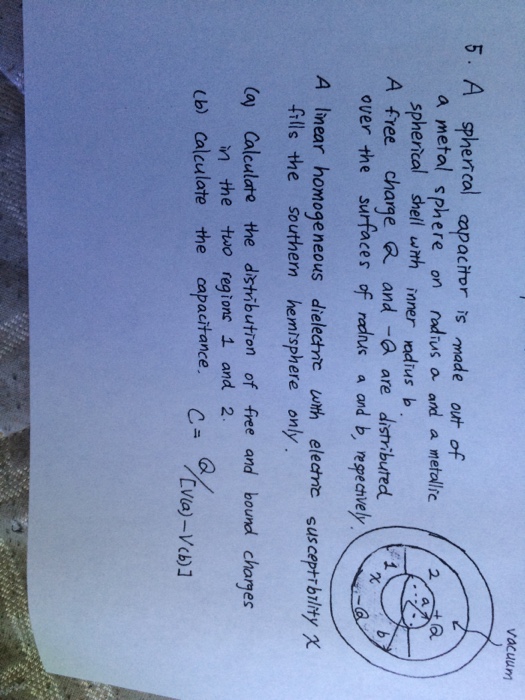 5. A spherical capacitor is made out of
a metal sphere on radius a and a metallic
spherical shell with inner radius b.
A free charge Q and -Q are distributed
over the surfaces of radius a and b, respectively.
A linear homogeneous dielectric with electric susceptibility χ
fills the southern hemisphere only.
(a) Calculate the distribution of free and bound charges
in the two regions 1 and 2.
(b) Calculate the capacitance. C = Q/[V(a)-V(b)]
vacuum
2
+Q
a
b
1
χ
-Q